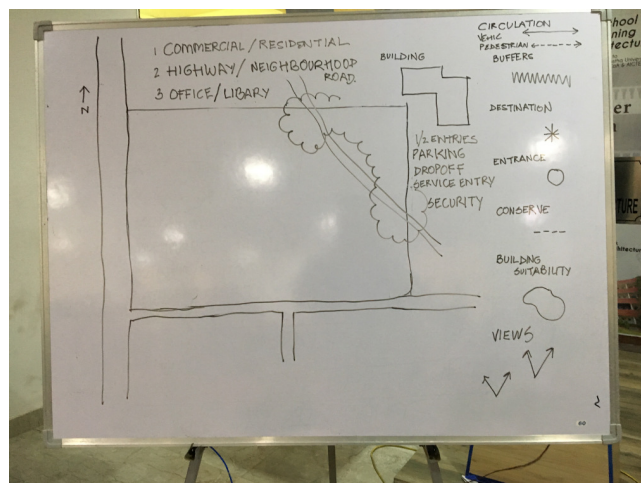 1 COMMERCIAL/RESIDENTIAL
2 HIGHWAY/NEIGHBOURHOOD
ROAD.
3 OFFICE/LIBARY
N
BUILDING
1/2 ENTRIES
PARKING
DROPOFF
SERVICE ENTRY
SECURITY
CIRCULATION
VEHIC
PEDESTRIAN
BUFFERS
DESTINATION
ENTRANCE
CONSERVE
BUILDING
SUITABILITY
VIEWS
hool
ning
itectur
er
TURE